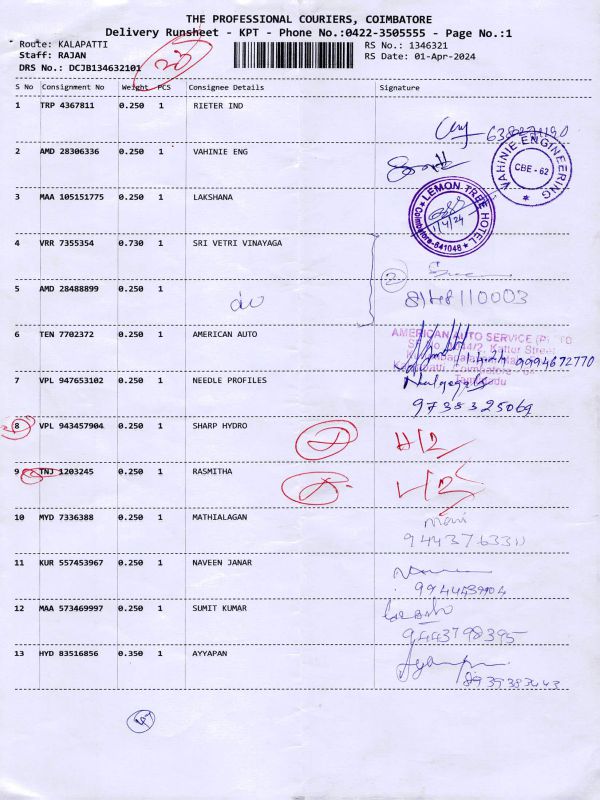 THE PROFESSIONAL COURIERS, COIMBATORE
Delivery Runsheet - KPT - Phone No.:0422-3505555 - Page No.:1
Route: KALAPATTI RS No.: 1346321
Staff: RAJAN RS Date: 01-Apr-2024
DRS No.: DCJB134632101
S No Consignment No Weight PCS Consignee Details Signature
1 TRP 4367811 0.250 1 RIETER IND
2 AMD 28306336 0.250 1 VAHINIE ENG
VAHINIE ENGINEERING
CBE - 62
3 MAA 105151775 0.250 1 LAKSHANA
LEMON TREE HOTEL
1/4/24
Coimbatore-641048
4 VRR 7355354 0.730 1 SRI VETRI VINAYAGA
2
5 AMD 28488899 0.250 1
8148110003
6 TEN 7702372 0.250 1 AMERICAN AUTO
AMERICAN AUTO SERVICE (P) LTD
9994672770
7 VPL 947653102 0.250 1 NEEDLE PROFILES
9738325069
8 VPL 943457904 0.250 1 SHARP HYDRO
9 TNJ 1203245 0.250 1 RASMITHA
10 MYD 7336388 0.250 1 MATHIALAGAN
mani
9443763311
11 KUR 557453967 0.250 1 NAVEEN JANAR
9944439904
12 MAA 573469997 0.250 1 SUMIT KUMAR
9443798395
13 HYD 83516856 0.350 1 AYYAPAN
8939383443